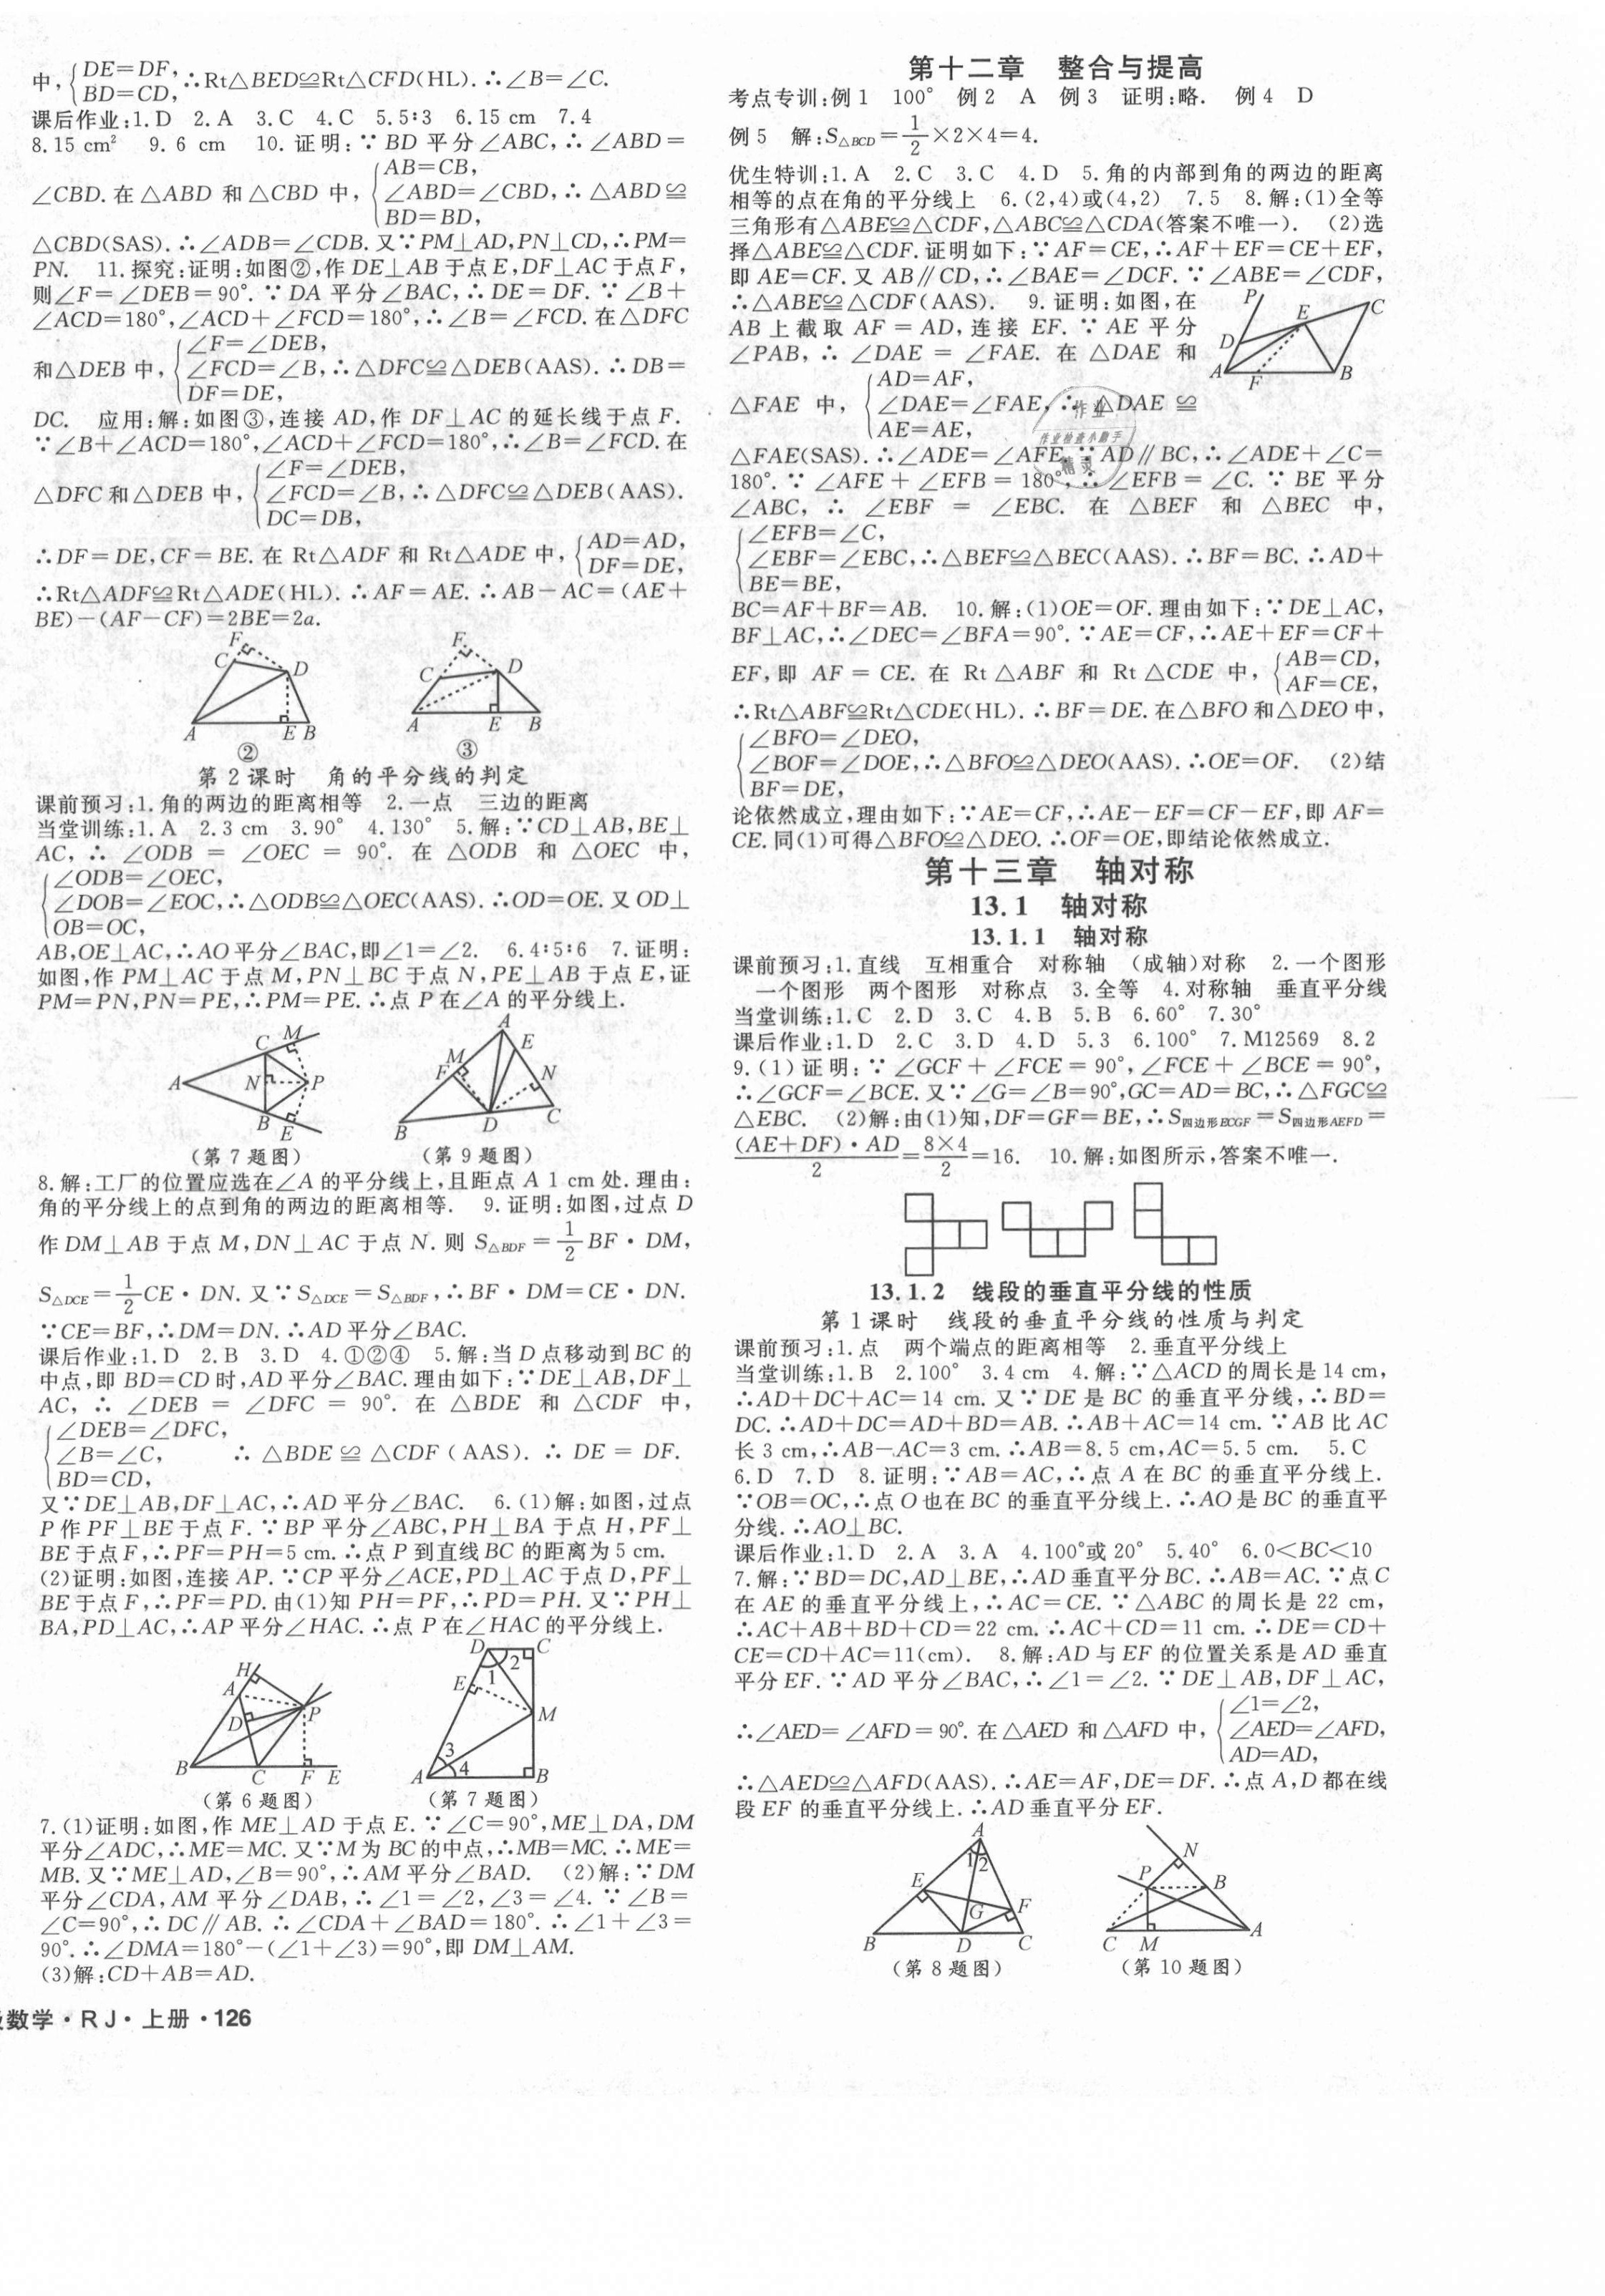 中,{DE=DF, BD=CD,∴Rt△BED≌Rt△CFD(HL).∴∠B=∠C.
课后作业:1.D 2.A 3.C 4.C 5.5∶3 6.15 cm 7.4
8.15 cm² 9.6 cm 10.证明:∵BD 平分∠ABC,∴∠ABD=
∠CBD.在△ABD 和△CBD 中,{AB=CB, ∠ABD=∠CBD, BD=BD,∴△ABD≌
△CBD(SAS).∴∠ADB=∠CDB.又∵PM⊥AD,PN⊥CD,∴PM=
PN. 11.探究:证明:如图②,作 DE⊥AB 于点 E,DF⊥AC 于点 F,
则∠F=∠DEB=90°.∵DA 平分∠BAC,∴DE=DF.∵∠B+
∠ACD=180°,∠ACD+∠FCD=180°,∴∠B=∠FCD.在△DFC
和△DEB 中,{∠F=∠DEB, ∠FCD=∠B, DF=DE,∴△DFC≌△DEB(AAS).∴DB=
DC. 应用:解:如图③,连接 AD,作 DF⊥AC 的延长线于点 F.
∵∠B+∠ACD=180°,∠ACD+∠FCD=180°,∴∠B=∠FCD.在
△DFC 和△DEB 中,{∠F=∠DEB, ∠FCD=∠B, DC=DB,∴△DFC≌△DEB(AAS).
∴DF=DE,CF=BE.在 Rt△ADF 和 Rt△ADE 中,{AD=AD, DF=DE,
∴Rt△ADF≌Rt△ADE(HL).∴AF=AE.∴AB-AC=(AE+
BE)-(AF-CF)=2BE=2a.
F C D A E B
②
F C D A E B
③
第 2 课时 角的平分线的判定
课前预习:1.角的两边的距离相等 2.一点 三边的距离
当堂训练:1.A 2.3 cm 3.90° 4.130° 5.解:∵CD⊥AB,BE⊥
AC,∴∠ODB=∠OEC=90°.在△ODB 和△OEC 中,
{∠ODB=∠OEC, ∠DOB=∠EOC, OB=OC,∴△ODB≌△OEC(AAS).∴OD=OE.又 OD⊥
AB,OE⊥AC,∴AO 平分∠BAC,即∠1=∠2. 6.4∶5∶6 7.证明:
如图,作 PM⊥AC 于点 M,PN⊥BC 于点 N,PE⊥AB 于点 E,证
PM=PN,PN=PE,∴PM=PE.∴点 P 在∠A 的平分线上.
C M A N P B E
(第 7 题图)
A E M F N B D C
(第 9 题图)
8.解:工厂的位置应选在∠A 的平分线上,且距点 A 1 cm 处.理由:
角的平分线上的点到角的两边的距离相等. 9.证明:如图,过点 D
作 DM⊥AB 于点 M,DN⊥AC 于点 N.则 S△BDF=1/2 BF·DM,
S△DCE=1/2 CE·DN.又∵S△DCE=S△BDF,∴BF·DM=CE·DN.
∵CE=BF,∴DM=DN.∴AD 平分∠BAC.
课后作业:1.D 2.B 3.D 4.①②④ 5.解:当 D 点移动到 BC 的
中点,即 BD=CD 时,AD 平分∠BAC.理由如下:∵DE⊥AB,DF⊥
AC,∴∠DEB=∠DFC=90°.在△BDE 和△CDF 中,
{∠DEB=∠DFC, ∠B=∠C, BD=CD,∴△BDE≌△CDF(AAS).∴DE=DF.
又∵DE⊥AB,DF⊥AC,∴AD 平分∠BAC. 6.(1)解:如图,过点
P 作 PF⊥BE 于点 F.∵BP 平分∠ABC,PH⊥BA 于点 H,PF⊥
BE 于点 F,∴PF=PH=5 cm.∴点 P 到直线 BC 的距离为 5 cm.
(2)证明:如图,连接 AP.∵CP 平分∠ACE,PD⊥AC 于点 D,PF⊥
BE 于点 F,∴PF=PD.由(1)知 PH=PF,∴PD=PH.又∵PH⊥
BA,PD⊥AC,∴AP 平分∠HAC.∴点 P 在∠HAC 的平分线上.
H A D P B C F E
(第 6 题图)
D C 2 1 E M 3 4 A B
(第 7 题图)
7.(1)证明:如图,作 ME⊥AD 于点 E.∵∠C=90°,ME⊥DA,DM
平分∠ADC,∴ME=MC.又∵M 为 BC 的中点,∴MB=MC.∴ME=
MB.又∵ME⊥AD,∠B=90°,∴AM 平分∠BAD. (2)解:∵DM
平分∠CDA,AM 平分∠DAB,∴∠1=∠2,∠3=∠4.∵∠B=
∠C=90°,∴DC∥AB.∴∠CDA+∠BAD=180°.∴∠1+∠3=
90°.∴∠DMA=180°-(∠1+∠3)=90°,即 DM⊥AM.
(3)解:CD+AB=AD.
级数学·RJ·上册·126
第十二章 整合与提高
考点专训:例 1 100° 例 2 A 例 3 证明:略. 例 4 D
例 5 解:S△BCD=1/2×2×4=4.
优生特训:1.A 2.C 3.C 4.D 5.角的内部到角的两边的距离
相等的点在角的平分线上 6.(2,4)或(4,2) 7.5 8.解:(1)全等
三角形有△ABE≌△CDF,△ABC≌△CDA(答案不唯一). (2)选
择△ABE≌△CDF.证明如下:∵AF=CE,∴AF+EF=CE+EF,
即 AE=CF.又 AB∥CD,∴∠BAE=∠DCF.∵∠ABE=∠CDF,
∴△ABE≌△CDF(AAS). 9.证明:如图,在
AB 上截取 AF=AD,连接 EF.∵AE 平分
∠PAB,∴∠DAE=∠FAE.在△DAE 和
P E C D A F B
△FAE 中,{AD=AF, ∠DAE=∠FAE, AE=AE,∴△DAE≌
△FAE(SAS).∴∠ADE=∠AFE.∵AD∥BC,∴∠ADE+∠C=
180°.∵∠AFE+∠EFB=180°,∴∠EFB=∠C.∵BE 平分
∠ABC,∴∠EBF=∠EBC.在△BEF 和△BEC 中,
{∠EFB=∠C, ∠EBF=∠EBC, BE=BE,∴△BEF≌△BEC(AAS).∴BF=BC.∴AD+
BC=AF+BF=AB. 10.解:(1)OE=OF.理由如下:∵DE⊥AC,
BF⊥AC,∴∠DEC=∠BFA=90°.∵AE=CF,∴AE+EF=CF+
EF,即 AF=CE.在 Rt△ABF 和 Rt△CDE 中,{AB=CD, AF=CE,
∴Rt△ABF≌Rt△CDE(HL).∴BF=DE.在△BFO 和△DEO 中,
{∠BFO=∠DEO, ∠BOF=∠DOE, BF=DE,∴△BFO≌△DEO(AAS).∴OE=OF. (2)结
论依然成立,理由如下:∵AE=CF,∴AE-EF=CF-EF,即 AF=
CE.同(1)可得△BFO≌△DEO.∴OF=OE,即结论依然成立.
第十三章 轴对称
13.1 轴对称
13.1.1 轴对称
课前预习:1.直线 互相重合 对称轴 (成轴)对称 2.一个图形
一个图形 两个图形 对称点 3.全等 4.对称轴 垂直平分线
当堂训练:1.C 2.D 3.C 4.B 5.B 6.60° 7.30°
课后作业:1.D 2.C 3.D 4.D 5.3 6.100° 7.M12569 8.2
9.(1)证明:∵∠GCF+∠FCE=90°,∠FCE+∠BCE=90°,
∴∠GCF=∠BCE.又∵∠G=∠B=90°,GC=AD=BC,∴△FGC≌
△EBC. (2)解:由(1)知,DF=GF=BE,∴S四边形ECGF=S四边形AEFD=
(AE+DF)·AD/2=8×4/2=16. 10.解:如图所示,答案不唯一.
13.1.2 线段的垂直平分线的性质
第 1 课时 线段的垂直平分线的性质与判定
课前预习:1.点 两个端点的距离相等 2.垂直平分线上
当堂训练:1.B 2.100° 3.4 cm 4.解:∵△ACD 的周长是 14 cm,
∴AD+DC+AC=14 cm.又∵DE 是 BC 的垂直平分线,∴BD=
DC.∴AD+DC=AD+BD=AB.∴AB+AC=14 cm.∵AB 比 AC
长 3 cm,∴AB-AC=3 cm.∴AB=8.5 cm,AC=5.5 cm. 5.C
6.D 7.D 8.证明:∵AB=AC,∴点 A 在 BC 的垂直平分线上.
∵OB=OC,∴点 O 也在 BC 的垂直平分线上.∴AO 是 BC 的垂直平
分线.∴AO⊥BC.
课后作业:1.D 2.A 3.A 4.100°或 20° 5.40° 6.0<BC<10
7.解:∵BD=DC,AD⊥BE,∴AD 垂直平分 BC.∴AB=AC.∵点 C
在 AE 的垂直平分线上,∴AC=CE.∵△ABC 的周长是 22 cm,
∴AC+AB+BD+CD=22 cm.∴AC+CD=11 cm.∴DE=CD+
CE=CD+AC=11(cm). 8.解:AD 与 EF 的位置关系是 AD 垂直
平分 EF.∵AD 平分∠BAC,∴∠1=∠2.∵DE⊥AB,DF⊥AC,
∴∠AED=∠AFD=90°.在△AED 和△AFD 中,{∠1=∠2, ∠AED=∠AFD, AD=AD,
∴△AED≌△AFD(AAS).∴AE=AF,DE=DF.∴点 A,D 都在线
段 EF 的垂直平分线上.∴AD 垂直平分 EF.
A 1 2 E F G B D C
(第 8 题图)
N P B C M A
(第 10 题图)
作业
作业检查小助手
精灵